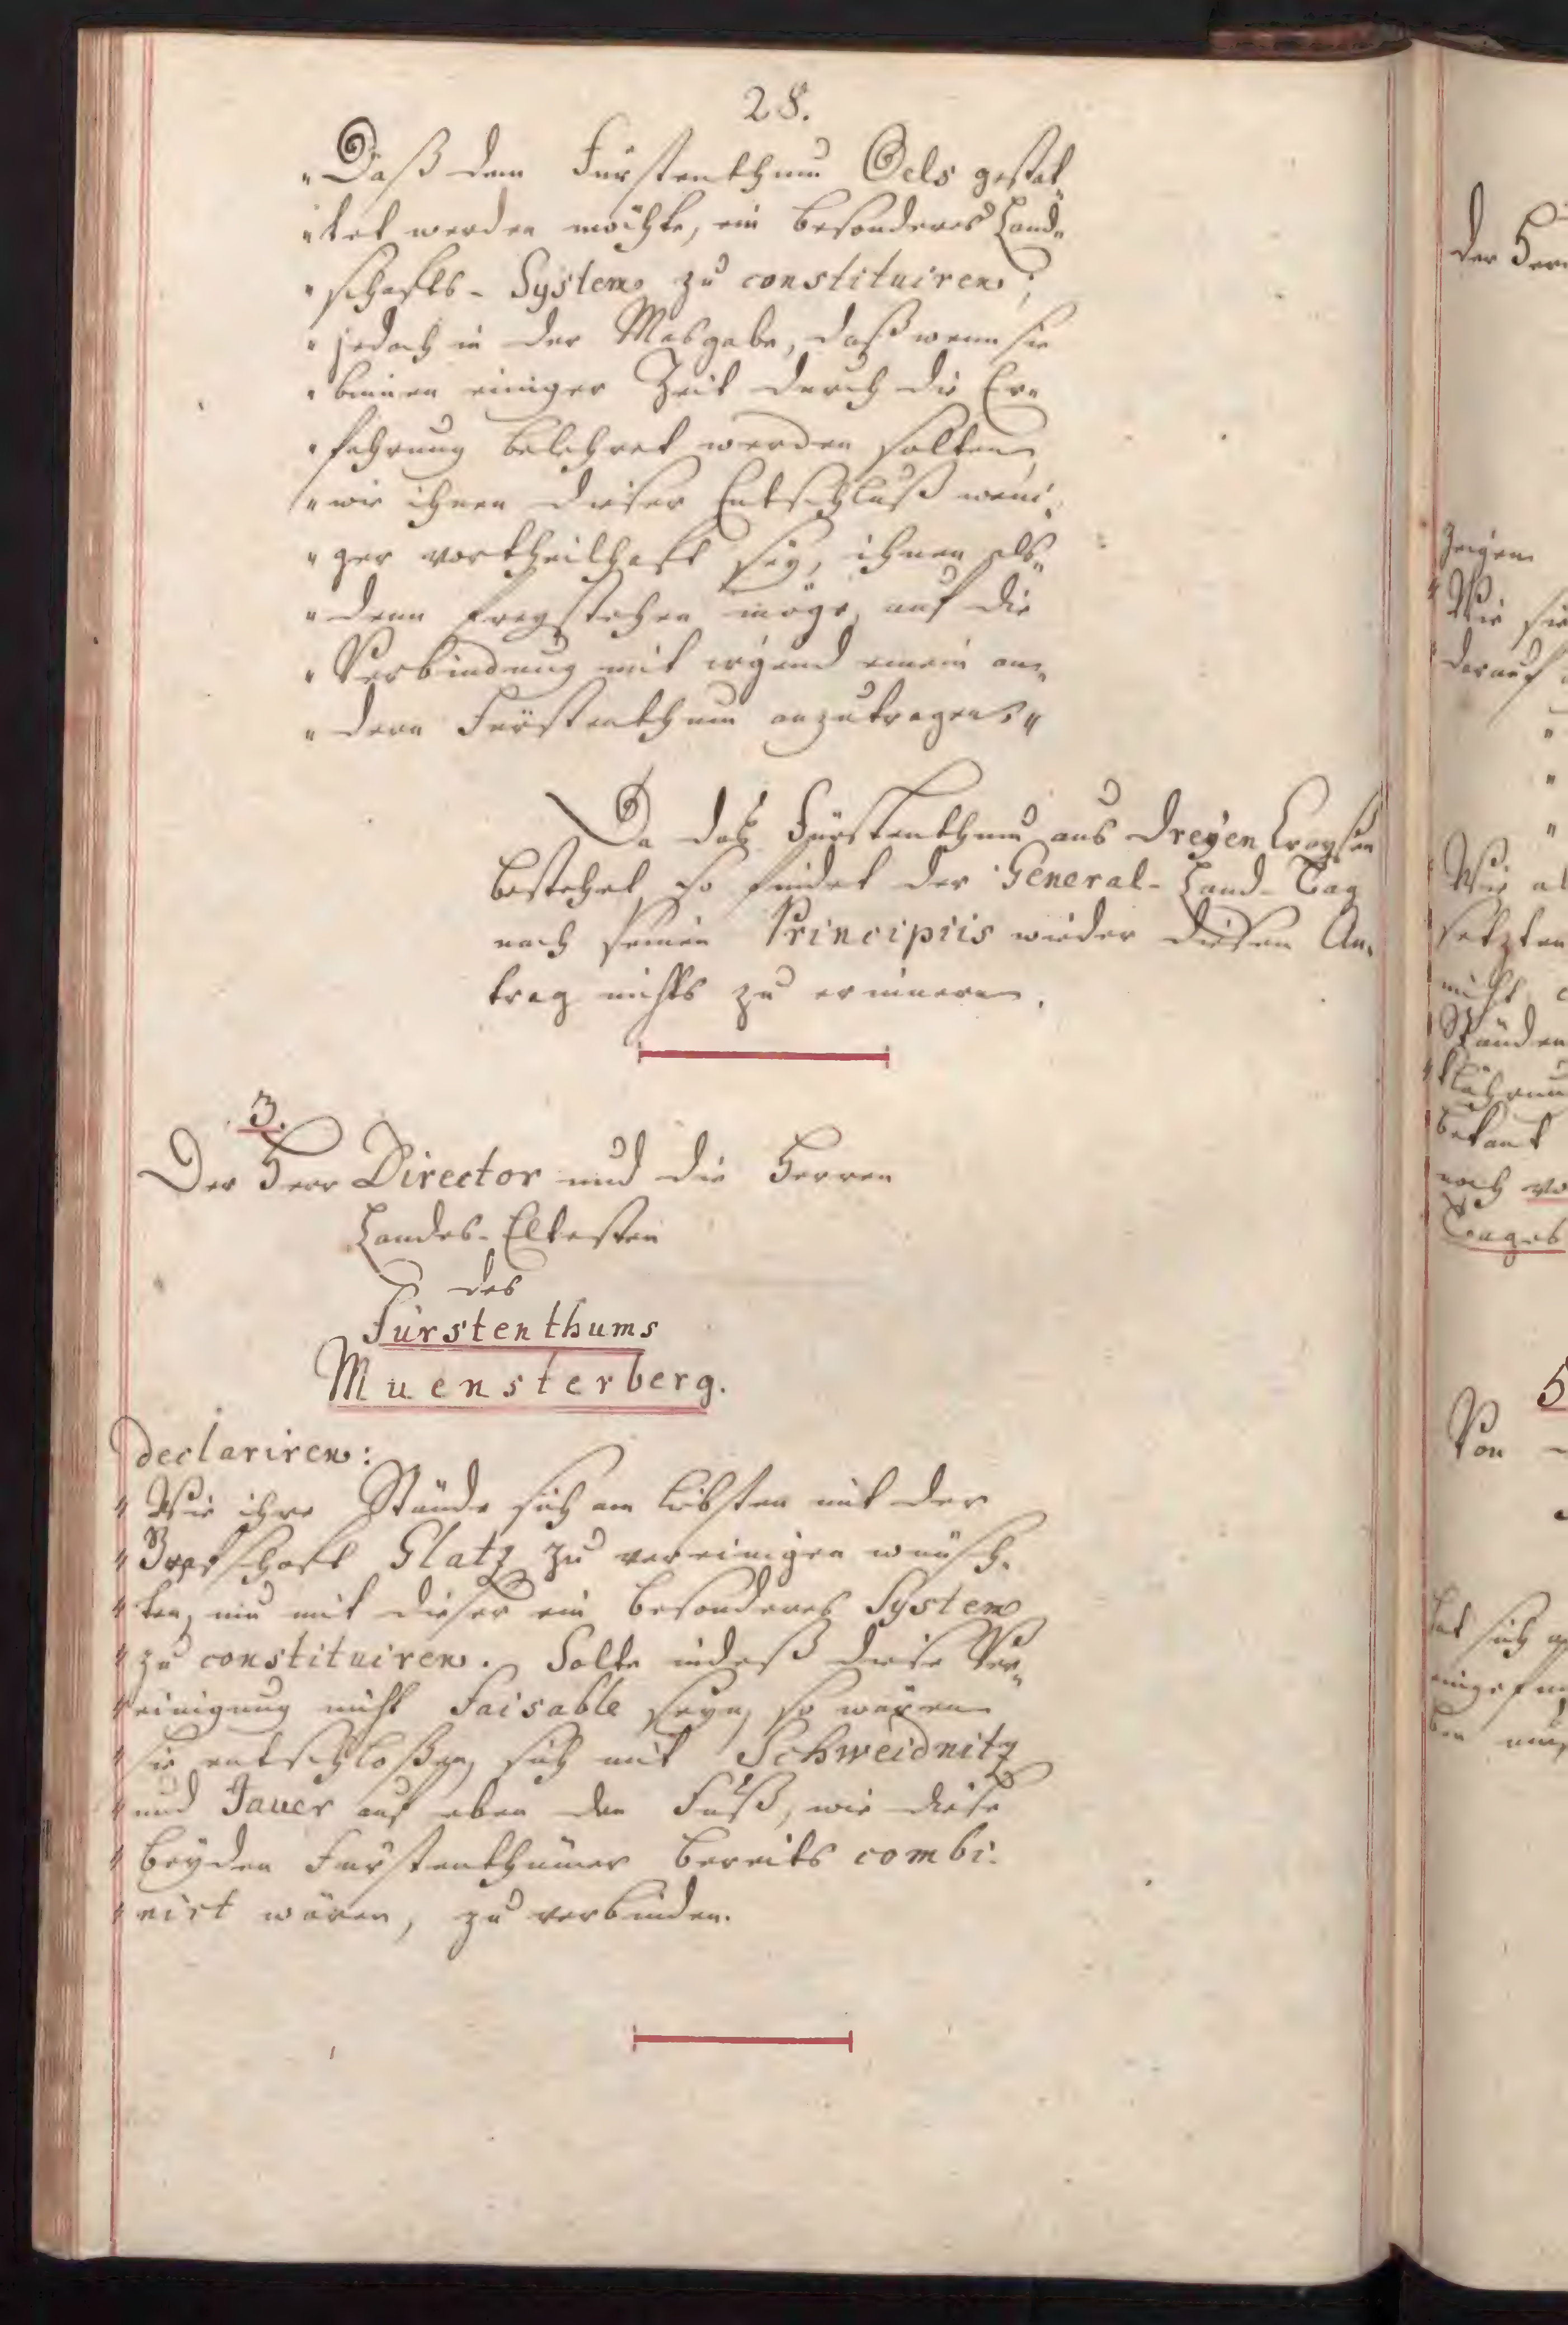 28.
"Daß dem Fürstenthum Oels gestat„
"tet werden möchte, ein besonderes Land„
"schafts-System zu constituiren;
"jedoch in der Masgabe, daß wenn sie
"binnen einiger Zeit durch die Er„
"fahrung belehret werden solten,
"wie ihnen dieser Entschluß weni„
"ger vortheilhaft sey, ihnen als„
"denn freystehen möge, auf die
"Verbindung mit irgend einem an„
"dern Fürstenthum anzutragen."
Da das Fürstenthum aus dreyen Craysen
bestehet, so findet der General-Land-Tag
nach seinen Principiis wieder diesen An„
trag nichts zu erinnern.
3.
Der Herr Director und die Herren
Landes-Eltesten
des
Fürstenthums
Muensterberg.
declariren:
"Wie ihre Stände sich am liebsten mit der
"Grafschaft Glatz zu vereinigen wünsch„
"ten, um mit dieser ein besonderes System
"zu constituiren. Solte indeß diese Ver„
"einigung nicht faisable seyn, so wären
"sie entschloßen, sich mit Schweidnitz
"und Jauer auf eben den Fuß, wie diese
"beyden Fürstenthümer bereits combi„
"nirt wären, zu verbinden.
der Herr
zeigen
Wie sie
darauf
Wie al
setzten
nicht
Ständen
klährun
bekant
noch vo
Tages
5
Von
hat sich
eingefun